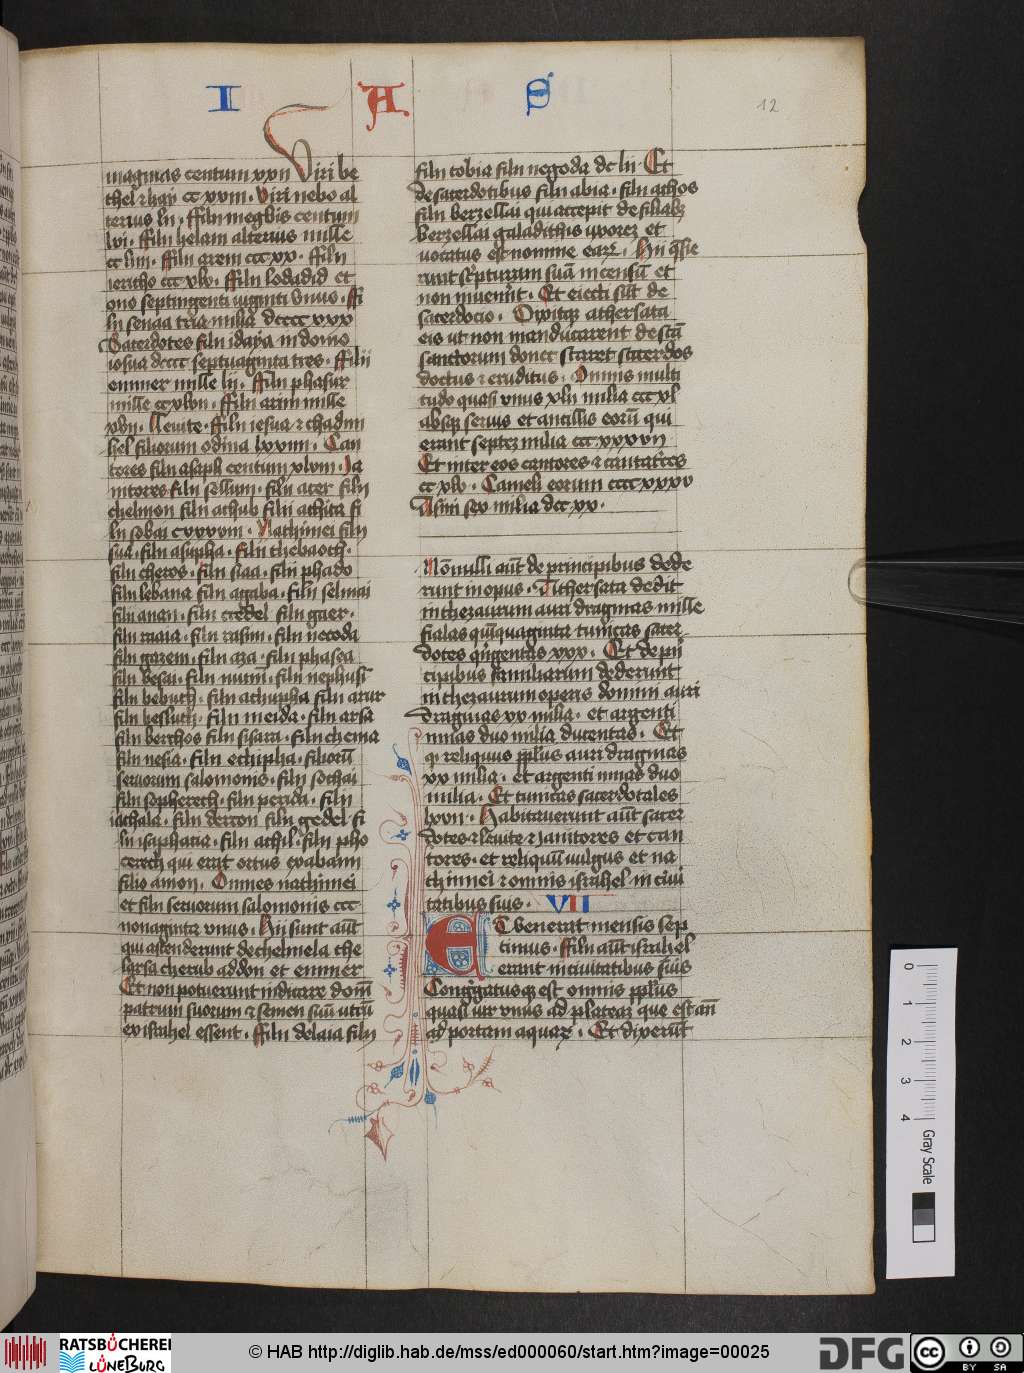 I A S
12
magmas centum xxii Viri be
thel et hay cc xxiii. Viri nebo al
terius lii. ffilii megbis centum
lvi. ffilii helam alterius mille
cc liiii. ffilii arem ccc xx. ffilii
iericho ccc xlv. ffilii lodadid et
ono septingenti viginti vnus. ffi
lii senaa tria milia dcccc xxx
Sacerdotes filii idaya in domo
iosua dcccc septuaginta tres. ffilii
emmer mille lii. ffilii phasur
mille cc xlvii. ffilii arim mille
xvii. Leuite. ffilii iesua et chadmi
hel filiorum odina lxxiiii. Can
tores filii asaph centum xlviii. Ja
nitores filii sellum. filii ater filii
thelmon filii athub filii athita fi
lii sobai Nathinei filii
sua. filii asupha. filii thebaoth.
filii cheros. filii siaa. filii phado
filii lebana filii agaba. filii selmai
filii anan. filii geddel filii gaer.
filii raaia. filii rasim. filii necoda
filii gazem. filii aza. filii phasea
filii besai. filii munim. filii nephusi
filii bebuth. filii achupha filii arur
filii besluth. filii meida. filii arsa
filii berchos filii sisara. filii thema
filii nesia. filii ethipha. filiorū
seruorum salomonis. filii sothai
filii sopherech. filii perida. filii
iathala. filii dercon filii gedel fi
lii isaphatia. filii athil. filii pho
cerech qui erat ortus exabaim
filio amon. Omnes nathinnei
et filii seruorum salomonis ccc
nonaginta vnus. Hij sunt aūt
qui ascenderunt dethelmela the
larsa cherub addon et emmer
Et non potuerunt indicare domū
patrum suorum et semen suū utrū
ex israhel essent. ffilii delaia filii
filii tobia filii negoda dc lii. Et
de sacerdotibus filii abia. filii achos
filii berzellai qui accepit de filiabꝫ
berzellai galadithis vxorez et
vocatus est nomine earꝝ. Hij q̄sie
runt sc̄pturam suā in censu et
non inuener̄t. Et eiecti sūt de
sacerdocio. Dixitqꝫ athersata
eis ut non manducarent de scā
sanctorum donec staret sacerdos
doctus et eruditus. Omnis multi
tudo quasi vnus xlii milia ccc xl
absqꝫ seruis et ancillis eorū qui
erant septez milia ccc xxxvii
Et inter eos cantores et cantat'ces
cc xlv. Cameli eorum cccc xxxv
Asini sex milia dcc xx.
Nōnulli aūt de principibus dede
runt in opus. Athersata dedit
in thezaurum auri dragmas mille
fialas quīquaginta tunicas sacer
dotes q'gentas xxx. Et de pri
cipibus familiarum dederunt
in thezaurum operis domini auri
dragmas xx milia. et argenti
mnas duo milia ducentas. Et
q' reliquus pplūs auri dragmas
xx milia. et argenti mnas duo
milia. Et tunicas sacerdotales
lxvii. Habitauerunt aūt sacer
dotes et leuite et janitores et can
tores. et reliquū vulgus et na
thinnei et omnis israhel in ciui
tatibus suis. VII
ET venerat mensis sep
timus. ffilii aūt israhel
erant in ciuitatibus suis
Congregatusqꝫ est omnis pplūs
quasi vir vnus ad plateaꝫ que est an̄
ad portam aquarꝝ. Et dixerūt
0 1 2 3 4 Gray Scale
RATSBÜCHEREI
LÜNEBURG
© HAB http://diglib.hab.de/mss/ed000060/start.htm?image=00025
DFG
cc BY SA